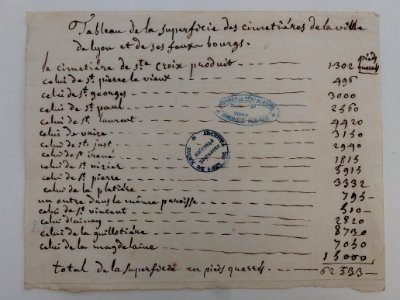 Tableau de la superficie des cimetiéres de la ville
de lyon et de ses faux bourgs.
pieds quarrés
la cimetiére de ste croix produit 1302
celui de st pierre le vieux 496
celui de st georges 3000
celui de st paul 2560
celui de st laurent 4420
celui de vaize 3150
celui de st just 2940
celui de st irené 1815
celui de st nizier 5915
celui de st pierre 3332
celui de la platiére 795
un autre dans le même paroisse 510
celui de st vincent 2820
celui d'ainay 8730
celui de la guillotiére 7050
celui de la magdelaine 15000
total de la superficie en pieds quarrés 62533